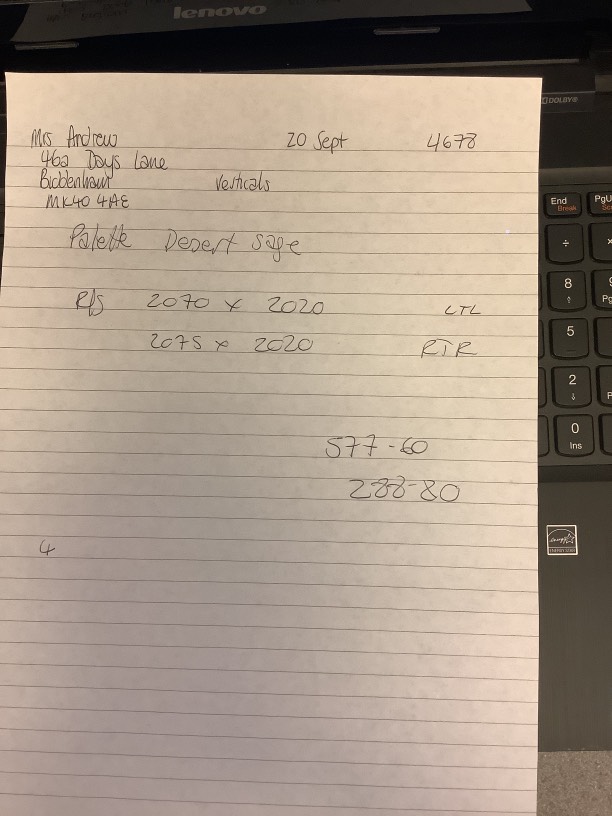 lenovo
DOLBY®
Mrs Andrew 20 Sept 4678
46a Days Lane
Biddenham Verticals
MK40 4AE
Palette Desert Sage
R/S 2070 x 2020 LTL
2075 x 2020 RTR
577-60
288-80
4
End
Break
PgU
÷
8
5
2
0
Ins
energy
ENERGY STAR